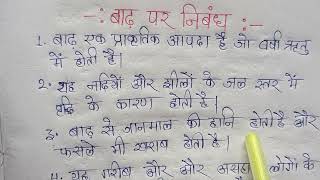 -: बाढ़ पर निबंध :-
1. बाढ़ एक प्राकृतिक आपदा है जो वर्षा ऋतु
में होती है।
2. यह नदियों और झीलों के जल स्तर में
वृद्धि के कारण होती है।
3. बाढ़ से जानमाल की हानि होती है और
फसलें भी खराब होती है।
4. यह गरीब और और असहाय लोगों के